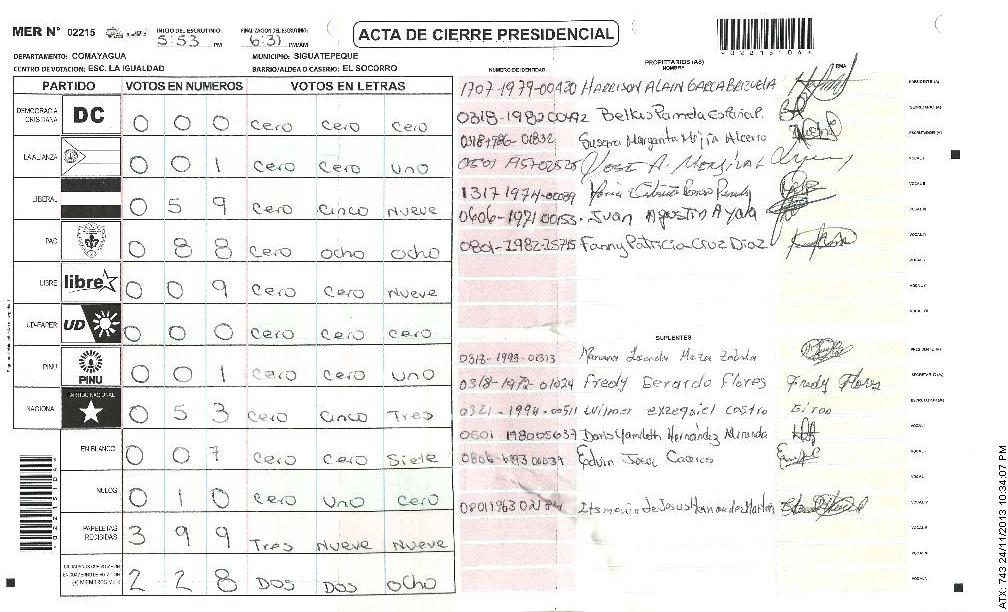 MER N° 02215 INICIO DEL ESCRUTINIO: 5:53 PM FINALIZACION DEL ESCRUTINIO: 6:31 PM/AM ACTA DE CIERRE PRESIDENCIAL
DEPARTAMENTO: COMAYAGUA MUNICIPIO: SIGUATEPEQUE
CENTRO DE VOTACION: ESC. LA IGUALDAD BARRIO/ALDEA O CASERIO: EL SOCORRO
PARTIDO VOTOS EN NUMEROS VOTOS EN LETRAS
DEMOCRACIA CRISTIANA DC 0 0 0 cero cero cero
LA ALIANZA 0 0 1 cero cero uno
LIBERAL 0 5 9 cero cinco nueve
PAC 0 8 8 cero ocho ocho
LIBRE libre 0 0 9 cero cero nueve
UD-FAPER UD 0 0 0 cero cero cero
PINU PINU 0 0 1 cero cero uno
NACIONAL PARTIDO NACIONAL 0 5 3 cero cinco Tres
EN BLANCO 0 0 7 cero cero siete
NULOS 0 1 0 cero uno cero
PAPELETAS RECIBIDAS 3 9 9 Tres nueve nueve
2 2 8 DOS DOS ocho
PROPIETARIOS (AS)
NUMERO DE IDENTIDAD NOMBRE FIRMA
1707-1979-00420 HARRISON ALAIN GARCA BRIZUELA PRESIDENTE (A)
Belkis Pamela España P. SECRETARIO (A)
0318-1986-01832 Susana Margarita Mejia Alcerro ESCRUTADOR (A)
JOSE A. VOCAL I
1317-1974-00039 VOCAL II
0606-1971 00155. Juan Agustin Ayala VOCAL III
0801-1982-25715 Fanny Patricia Cruz Diaz
SUPLENTES
0318-1993-01313 PRESIDENTE (A)
0318-1972-01024 Fredy Gerardo Flores Fredy Flores SECRETARIO (A)
0321-1994-00511 Wilmer exzequiel castro ESCRUTADOR (A)
0601 198005637 Doris Yamileth Hernández Miranda VOCAL I
Edvin
de Jesus Hernandez
ATX: 743 24/11/2013 10:34:07 PM